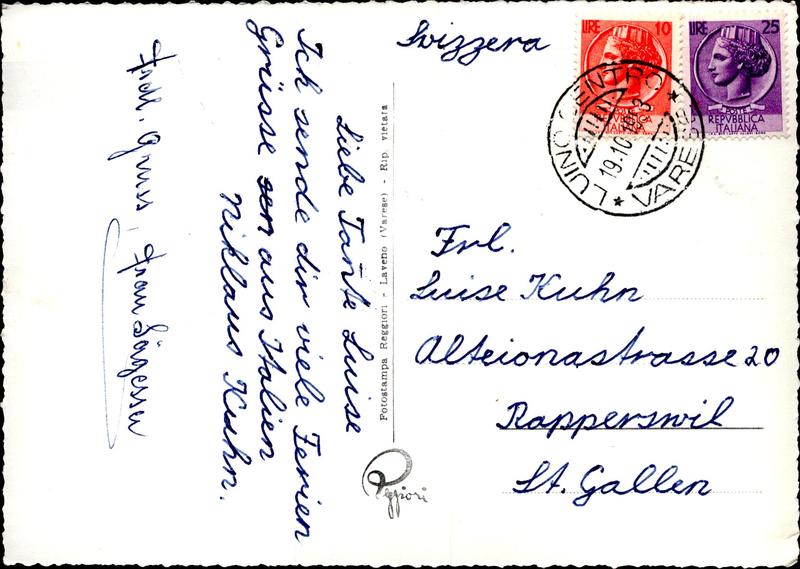 Svizzera
LIRE 10
POSTE
REPVBBLICA
ITALIANA
LIRE 25
POSTE
REPVBBLICA
ITALIANA
LUINO CENTRO * VARESE *
19.10
Liebe Tante Luise
Ich sende dir viele Ferien
Grüsse aus Italien
Niklaus Kuhn.
Frdl. Gruss, Frau Lägesser
Fotostampa Reggiori - Laveno (Varese) - Rip. vietata
Reggiori
Frl.
Luise Kuhn
Alteionastrasse 20
Rapperswil
St. Gallen